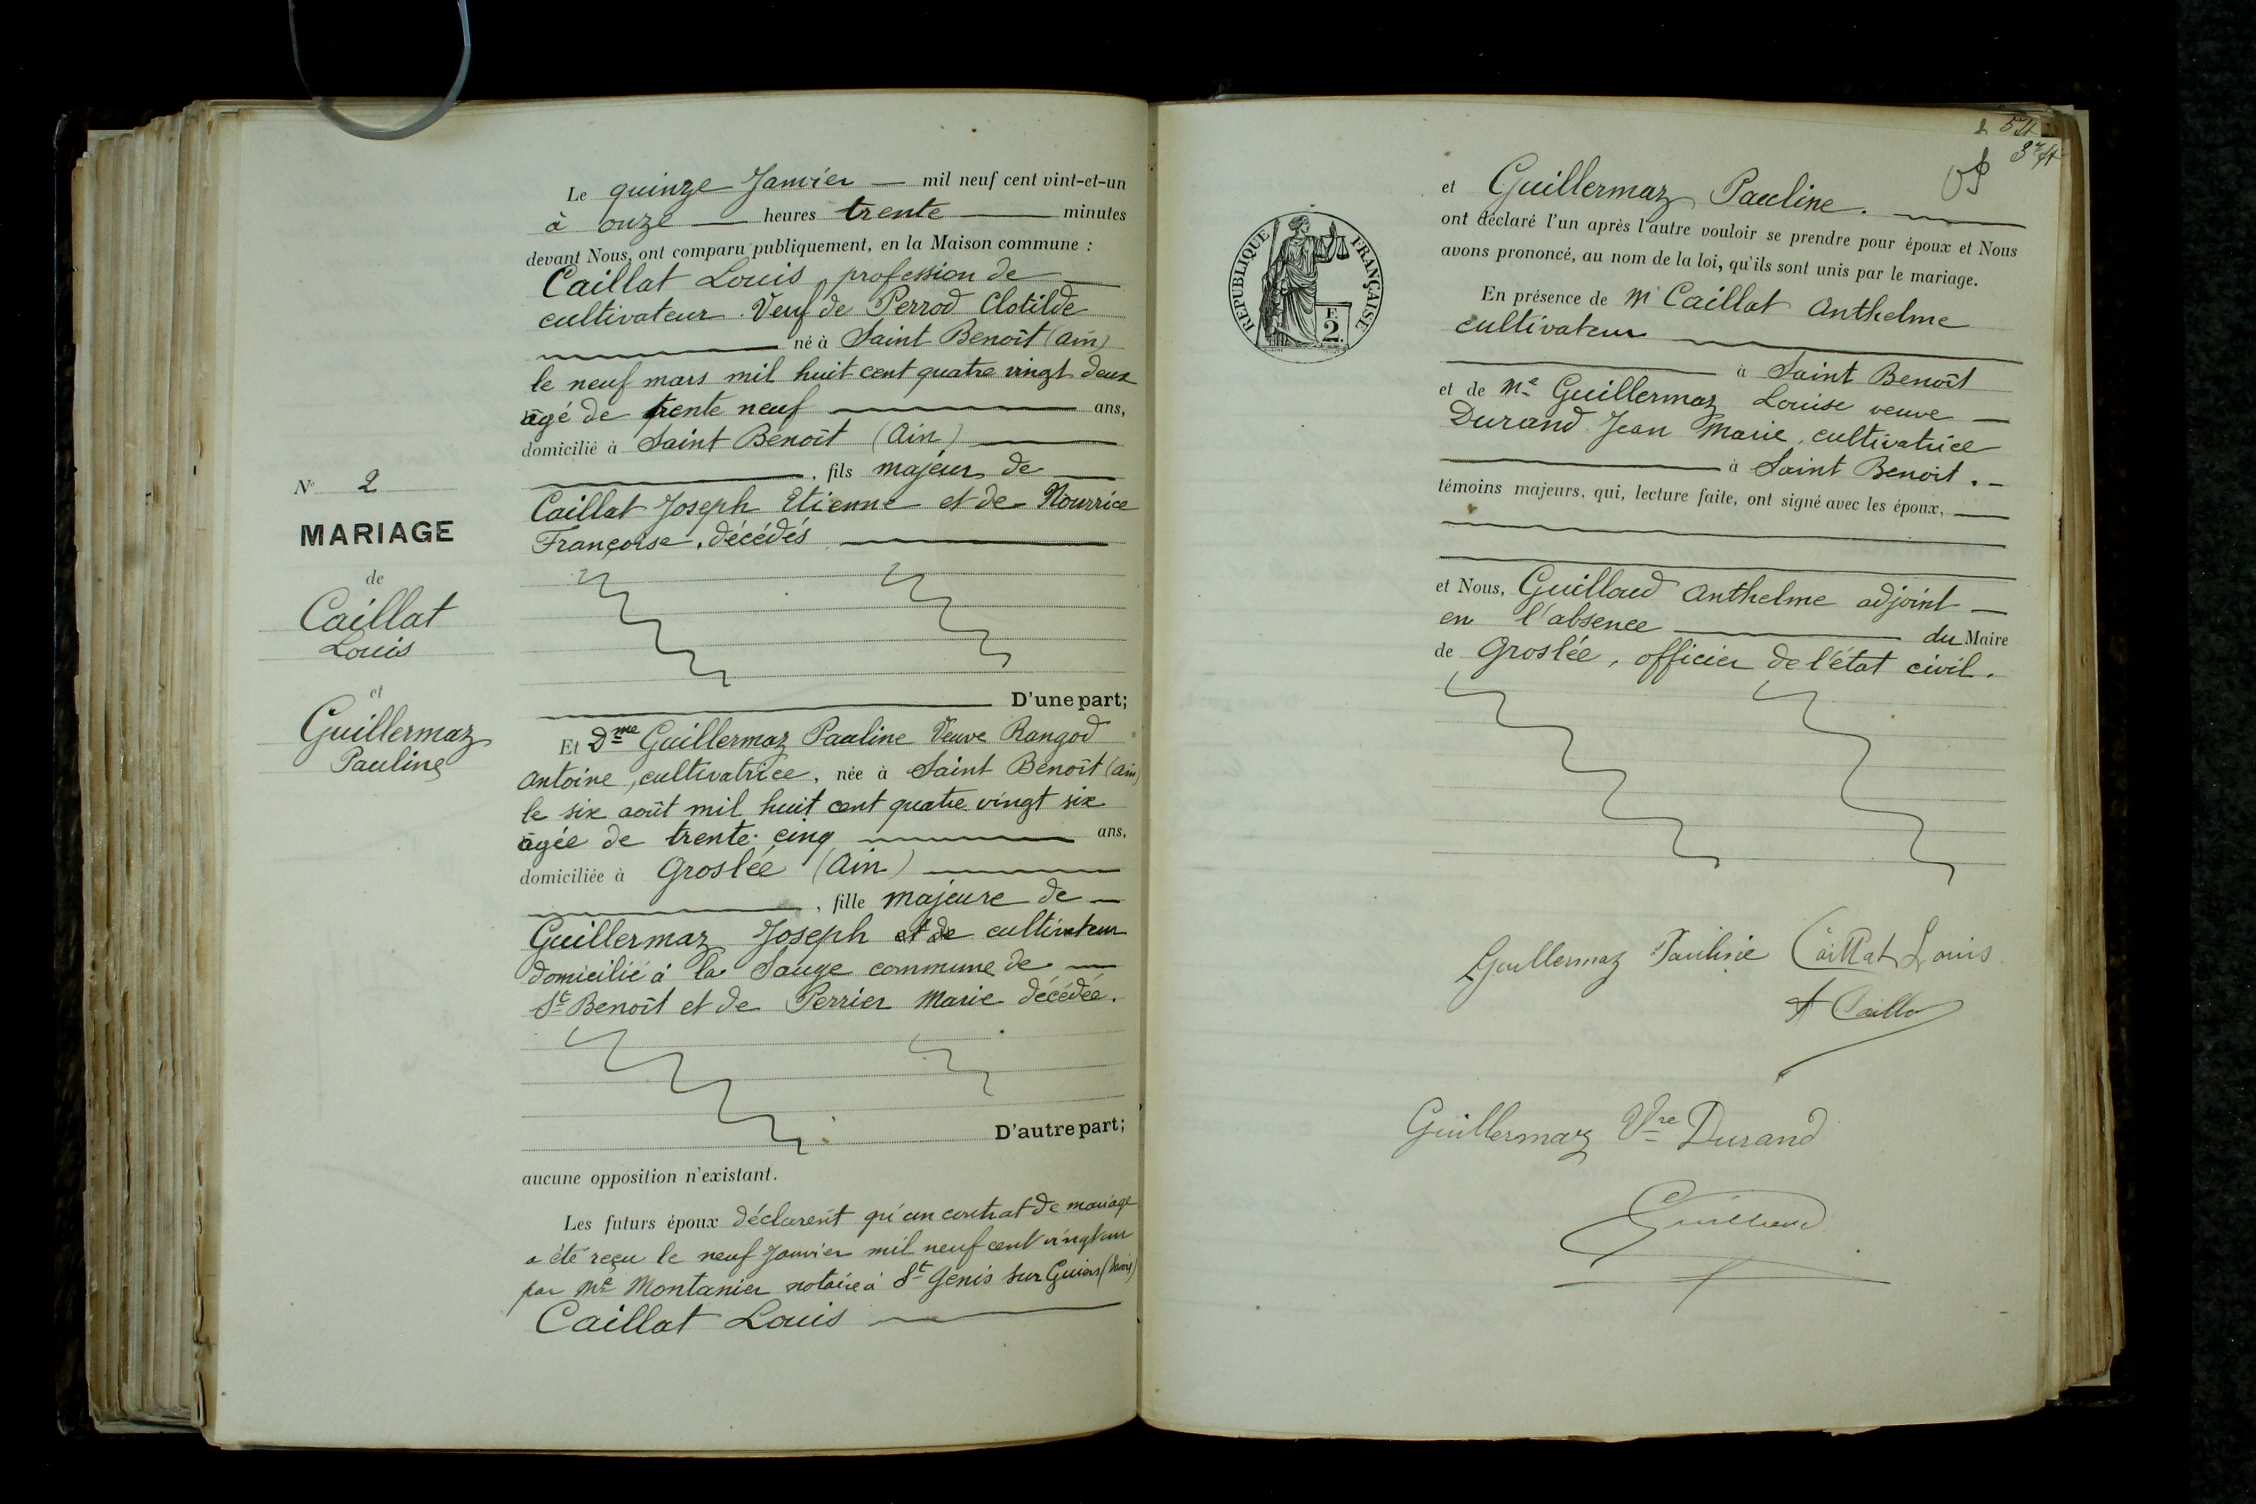 Le quinze Janvier mil neuf cent vint-et-un
à onze heures trente minutes
devant Nous, ont comparu publiquement, en la Maison commune :
Caillat Louis, profession de
cultivateur. Veuf de Perrod Clotilde
né à Saint Benoît (Ain)
le neuf mars mil huit cent quatre vingt deux
âgé de trente neuf ans,
domicilié à Saint Benoît (Ain)
, fils majeur de
Caillat Joseph Etienne et de Nourrice
Françoise, décédés
D'une part;
Et Dme Guillermaz Pauline Veuve Rangod
Antoine, cultivatrice, née à Saint Benoît (Ain)
le six août mil huit cent quatre vingt six
âgée de trente-cinq ans,
domiciliée à Groslée (Ain)
, fille majeure de
Guillermaz Joseph et de cultivateur
domicilié à la Sauge commune de
St Benoît et de Perrier Marie décédée.
D'autre part;
aucune opposition n'existant.
Les futurs époux déclarent qu'un contrat de mariage
a été reçu le neuf Janvier mil neuf cent vingt un
par Me Montanier notaire à St Genis sur Guiers
Caillat Louis
N° 2
MARIAGE
de
Caillat
Louis
et
Guillermaz
Pauline
RÉPUBLIQUE FRANÇAISE
2
F
2.
et Guillermaz Pauline.
ont déclaré l'un après l'autre vouloir se prendre pour époux et Nous
avons prononcé, au nom de la loi, qu'ils sont unis par le mariage.
En présence de Mr Caillat Anthelme
cultivateur
à Saint Benoît
et de Me Guillermaz Louise veuve
Durand Jean Marie, cultivatrice
à Saint Benoit.
témoins majeurs, qui, lecture faite, ont signé avec les époux,
et Nous, Guilland Anthelme adjoint
en l'absence du Maire
de Groslée, officier de l'état civil.
Guillermaz Pauline Caillat Louis
A Caillat
Guillermaz Vve Durand
Guilland